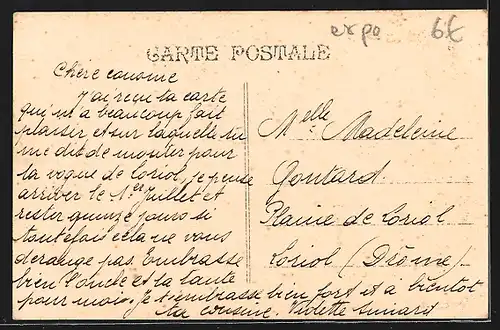 expo 6€
CARTE POSTALE
Chère cousine
j'ai reçu ta carte
qui m'a beaucoup fait
plaisir et sur laquelle tu
me dit de monter pour
la vogue de Loriol, je pense
arriver le 1er Juillet et
rester quinze jours si
toutefois cela ne vous
derange pas. Embrasse
bien l'oncle et la tante
pour moi. Je t'embrasse bien fort et a bientot
Ta cousine. Violette
Melle Madeleine
Gontard
Plaine de Loriol
Loriol (Drôme)